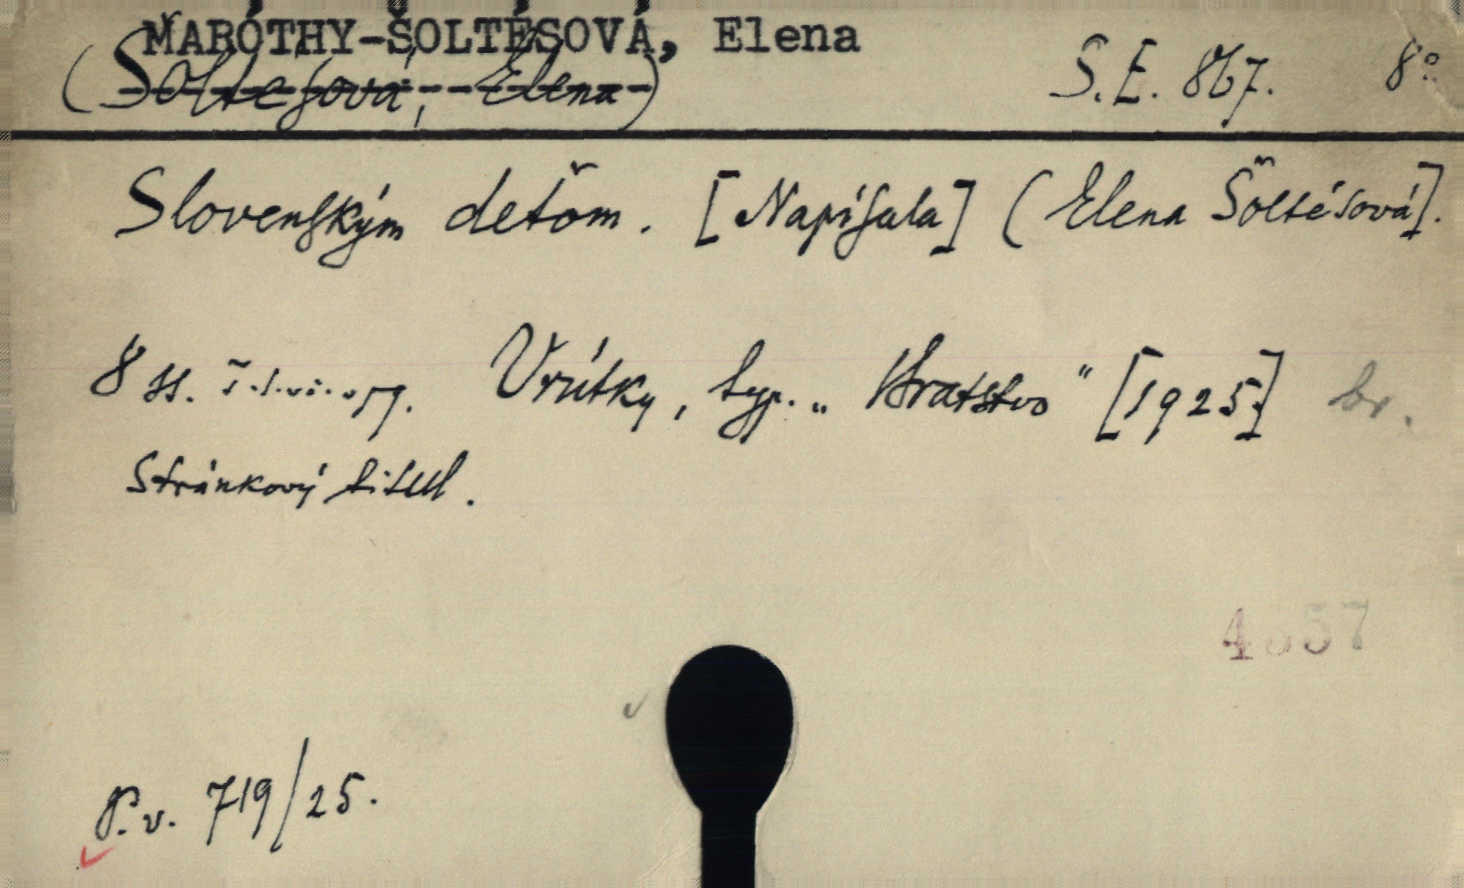 MARÓTHY-ŠOLTÉSOVÁ, Elena
(Šoltésová, Elena)
S.E. 867. 8°
Slovenským deťom. [Napísala] (Elena Šoltésová].
8 ss. Vrútky, typ. „Bratstvo" [1925] br.
Stránkový titul.
4357
P.v. 719/25.